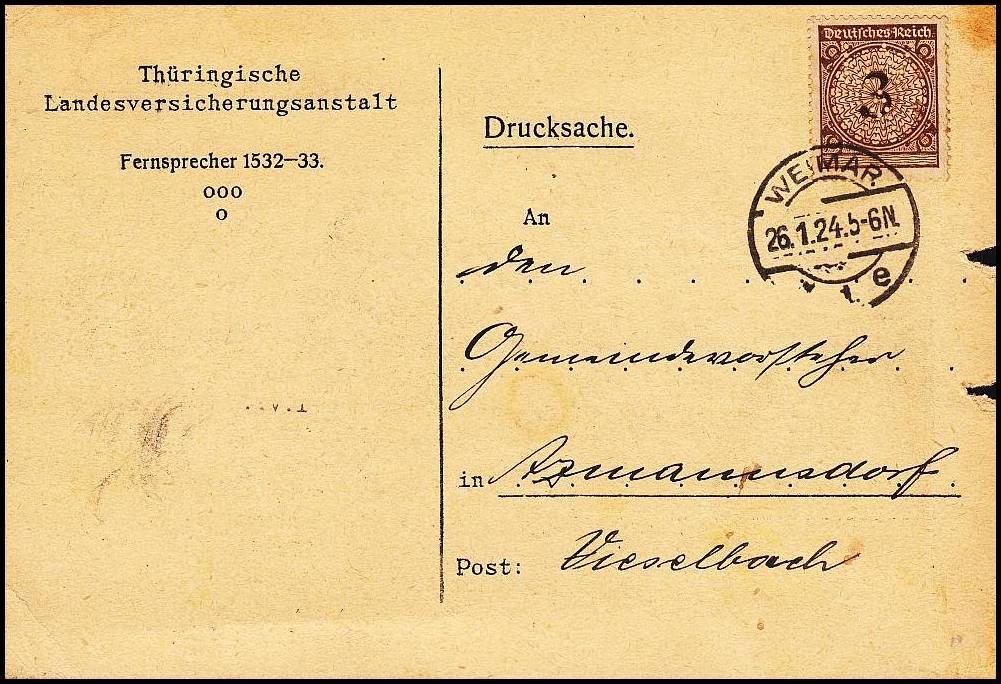 Thüringische
Landesversicherungsanstalt
Fernsprecher 1532—33.
ooo
o
Drucksache.
Deutsches Reich
3
WEIMAR
26.1.24.5-6N.
e
An
den
Gemeindevorsteher
in Azmannsdorf.
Post: Vieselbach